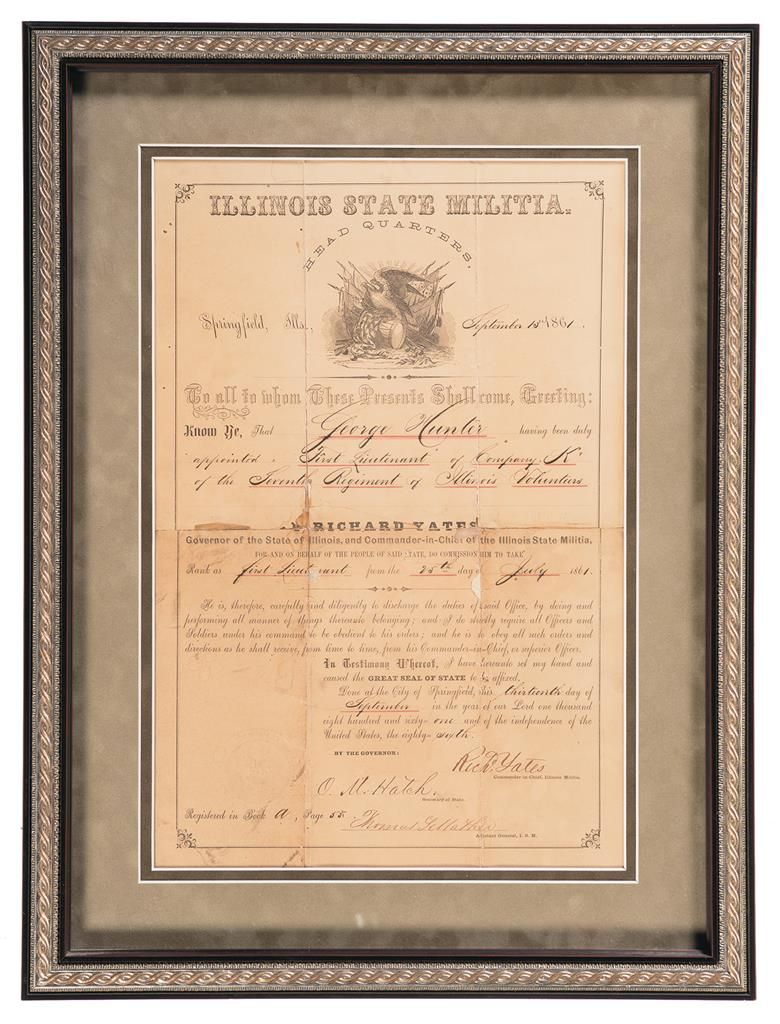 ILLINOIS STATE MILITIA.
HEAD QUARTERS,
Springfield, Ills., September 13th 1861.
To all to whom These Presents Shall come, Greeting:
Know Ye, That George Hunter having been duly
appointed First Lieutenant of Company "K"
of the Seventh Regiment of Illinois Volunteers
I, RICHARD YATES
Governor of the State of Illinois, and Commander-in-Chief of the Illinois State Militia,
FOR AND ON BEHALF OF THE PEOPLE OF SAID STATE, DO COMMISSION HIM TO TAKE
Rank as first Lieutenant from the 25th day of July 1861.
He is, therefore, carefully and diligently to discharge the duties of said Office, by doing and
performing all manner of things thereunto belonging; and I do strictly require all Officers and
Soldiers under his command to be obedient to his orders; and he is to obey all such orders and
directions as he shall receive, from time to time, from his Commander-in-Chief, or superior Officer.
In Testimony Whereof, I have hereunto set my hand and
caused the GREAT SEAL OF STATE to be affixed.
Done at the City of Springfield, this thirteenth day of
September in the year of our Lord one thousand
eight hundred and sixty-one and of the independence of the
United States, the eighty-sixth.
BY THE GOVERNOR:
Richd. Yates
Commander-in-Chief, Illinois Militia.
O. M. Hatch.
Secretary of State.
Registered in Book A, Page 55 Thomas S Mather
Adjutant General, I. S. M.